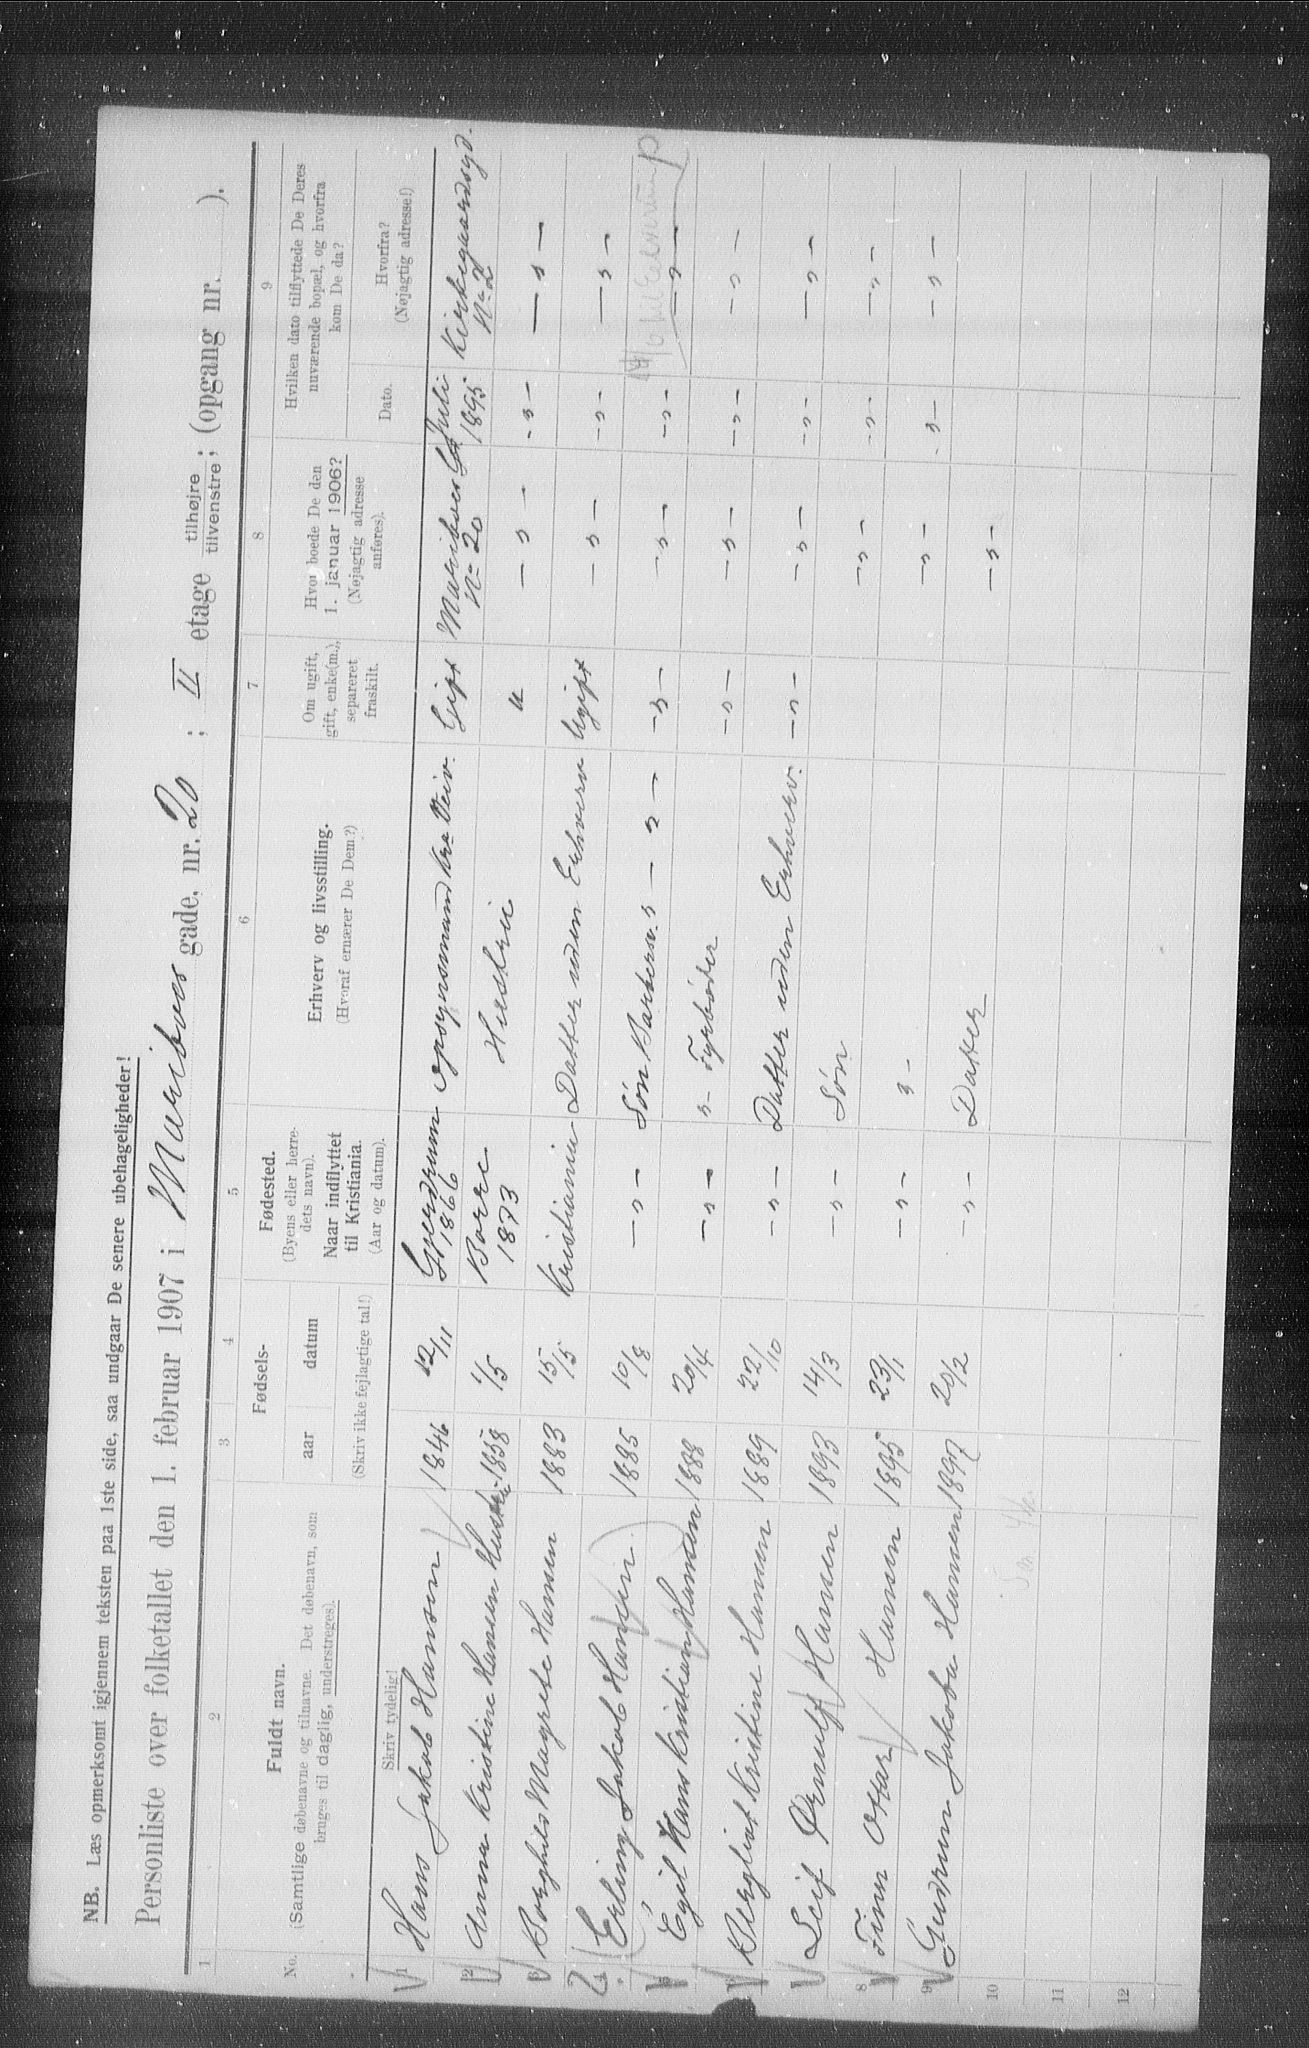 NB. Læs opmerksomt igjennem teksten paa 1ste side, saa undgaar De senere ubehageligheder!
Personliste over folketallet den 1. februar 1907 i Mariboes gade, nr. 20 ; II etage tilhøjre tilvenstre ; (opgang nr. ).
1 2 3 4 5 6 7 8 9
No.
Fuldt navn.
(Samtlige døbenavne og tilnavne. Det døbenavn, som
bruges til daglig, understreges).
Skriv tydelig!
Fødsels-
aar datum
(Skriv ikke fejlagtige tal!)
Fødested.
(Byens eller herre-
dets navn).
Naar indflyttet
til Kristiania.
(Aar og datum).
Erhverv og livsstilling.
(Hvoraf ernærer De Dem?)
Om ugift,
gift, enke(m.),
separeret
fraskilt.
Hvor boede De den
1. januar 1906?
(Nøjagtig adresse
anføres).
Hvilken dato tilflyttede De Deres
nuværende bopæl, og hvorfra
kom De da?
Dato.
Hvorfra?
(Nøjagtig adresse!)
1 Hans Jakob Hansen 1846 12/11 Gjerdrum 1866 opsynsmand Kra Veiv. Gift Mariboes Gt No 20 Juli 1895 Kirkegaardsgd. No 2
2 Anna Kristine Hansen Hustru 1858 1/5 Borre 1873 Hustru " — " — - " - — " —
3 Borghild Magrete Hansen 1883 15/5 Kristiania Datter uden Erhverv Ugift — " — - " - — " —
4 Erling Jakob Hansen 1885 10/8 — " — Søn " — " — — " — — " — - " - — " —
Egil Hans Kristian Hansen 1888 20/4 — " — " - Fyrbøder — " — — " — - " - — " —
Bergliot Kristine Hansen 1889 22/10 — " — Datter uden Erhverv. — " — — " — - " - — " —
Leif Ørnulf Hansen 1893 14/3 — " — Søn — " — - " - — " —
8 Finn Ottar Hansen 1895 23/1 — " — " - — " — - " - — " —
9 Gudrun Jakoba Hansen 1897 20/2 — " — Datter — " — " - — " —
10
11
12